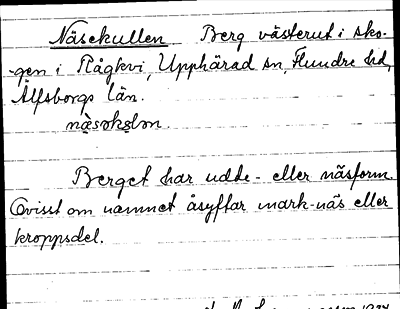 Näsekullen Berg västerut i sko-
gen i Rågkvi, Upphärad sn, Flundre hd,
Älfsborgs län.
Berget har udde- eller näsform.
Ovisst om namnet åsyftar mark-näs eller
kroppsdel.